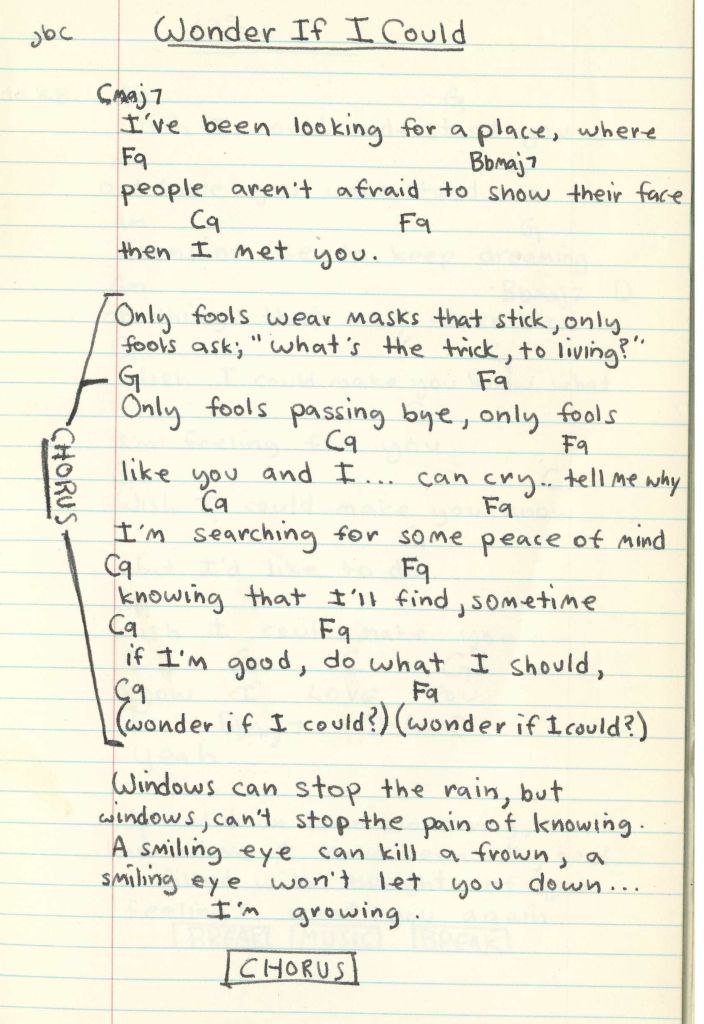 jbc
Wonder If I Could
Cmaj7
I've been looking for a place, where
F9 Bbmaj7
people aren't afraid to show their face
C9 F9
then I met you.
Only fools wear masks that stick, only
fools ask; "what's the trick, to living?"
G F9
Only fools passing bye, only fools
C9 F9
like you and I... can cry.. tell me why
C9 F9
I'm searching for some peace of mind
C9 F9
knowing that I'll find, sometime
C9 F9
if I'm good, do what I should,
C9 F9
(wonder if I could?) (wonder if I could?)
CHORUS
Windows can stop the rain, but
windows, can't stop the pain of knowing.
A smiling eye can kill a frown, a
smiling eye won't let you down...
I'm growing.
CHORUS